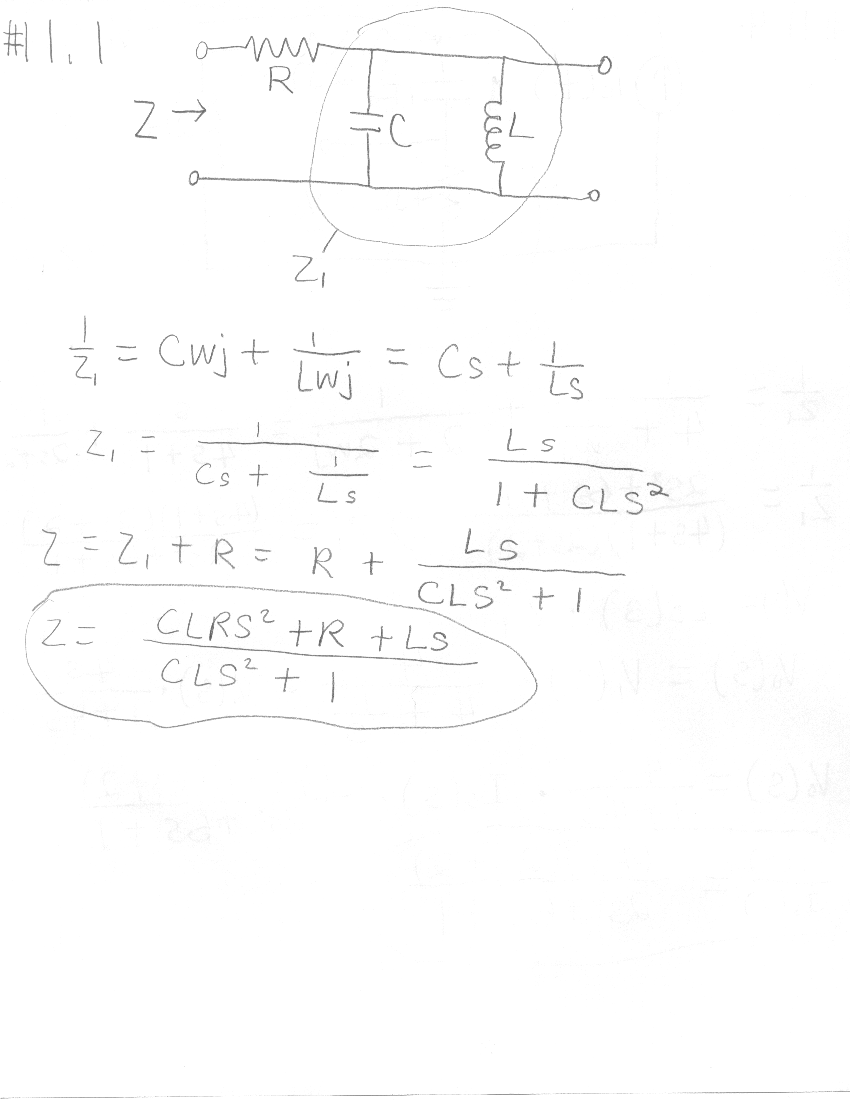 #11.1
R
Z →
C
L
Z₁
1/Z₁ = Cwj + 1/Lwj = Cs + 1/Ls
Z₁ = 1/(Cs + 1/Ls) = Ls/(1 + CLS²)
Z = Z₁ + R = R + LS/(CLS² + 1)
Z = (CLRS² + R + LS)/(CLS² + 1)